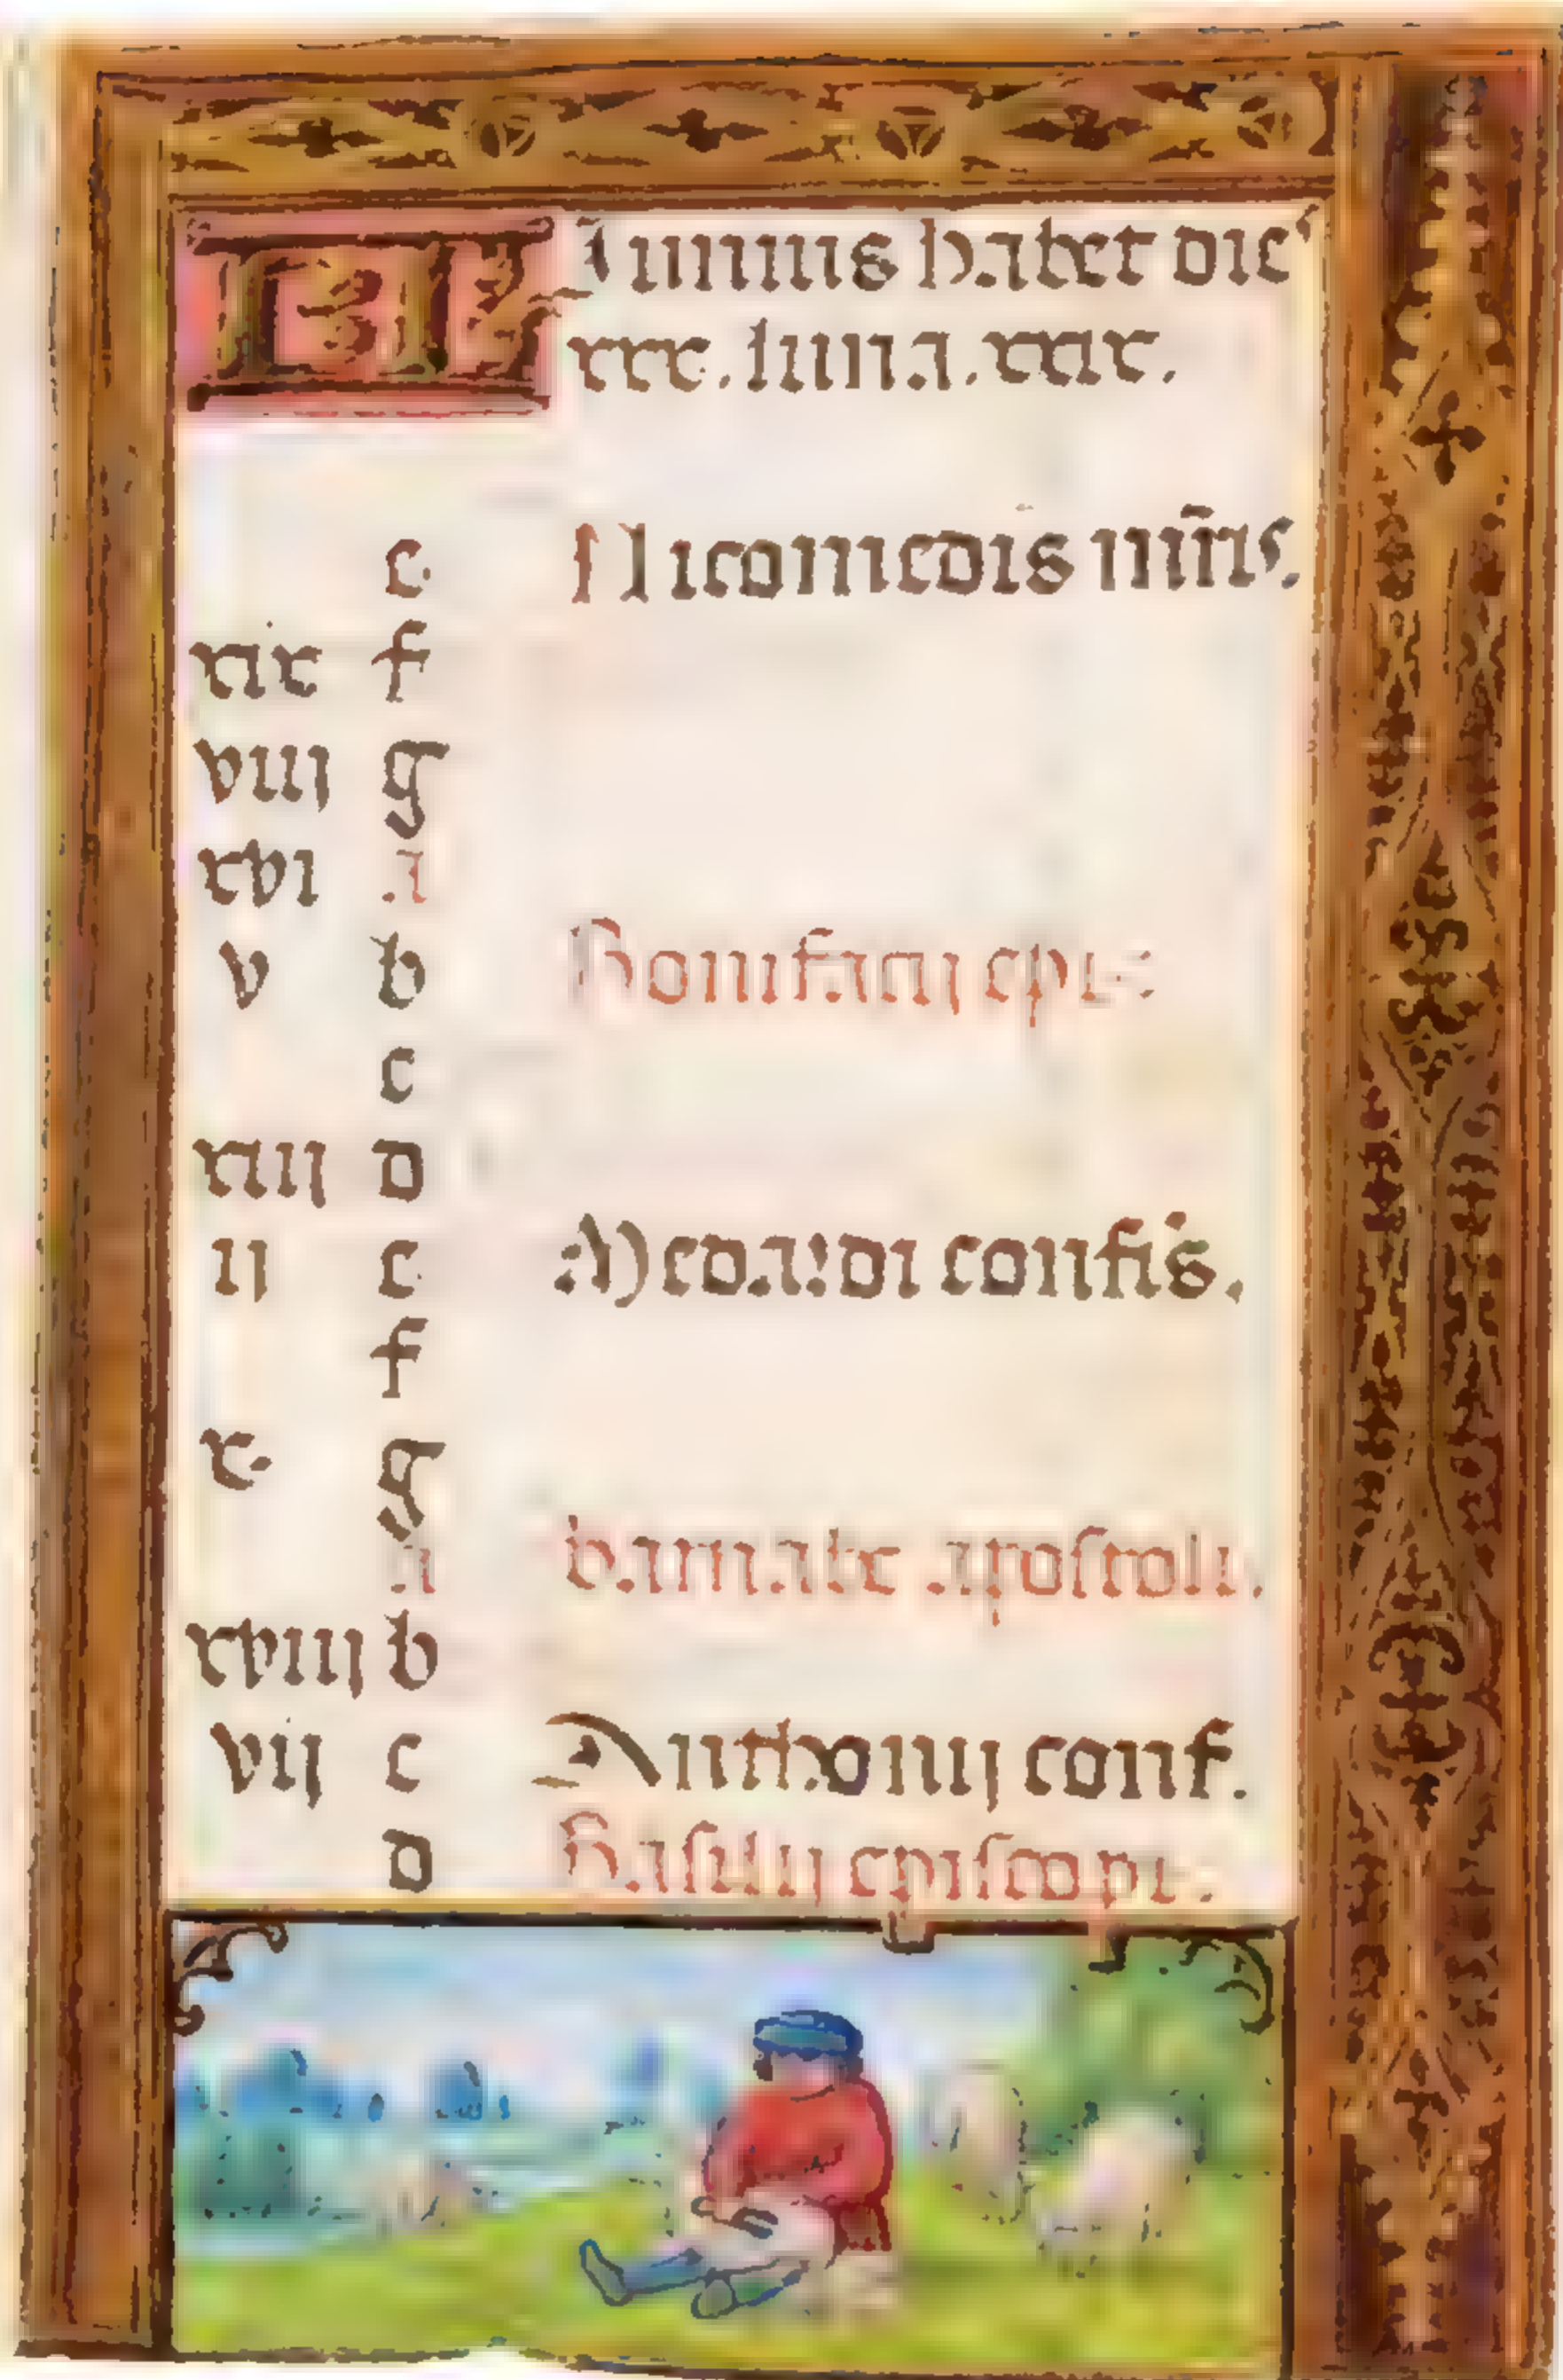 KL Iunius habet die'
xxx. luna. xxix.
e Nicomedis mr̄is.
xix f
viij g
xvi a
v b Bonifacij epi.
c
xiij d
ij e Medardi confis.
f
x g
a barnabe apostoli.
xviij b
vij c Anthonij conf.
d Basilij episcopi.